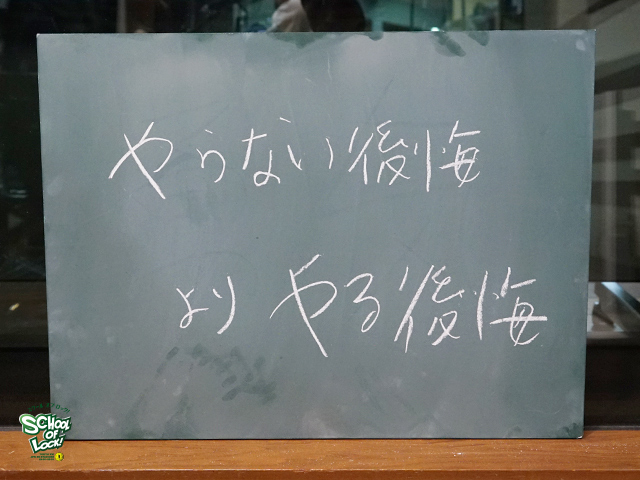 やらない後悔
よりやる後悔
SCHOOL
OF
LOCK!